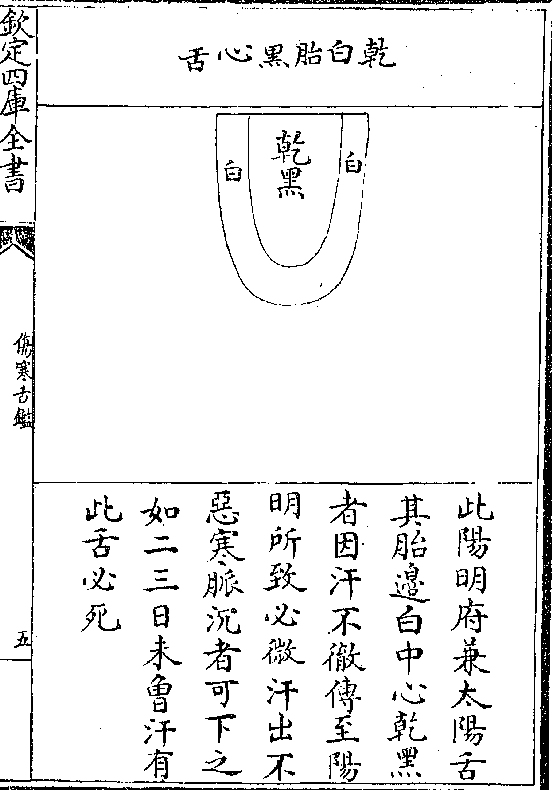 乾白胎黑心舌
乾黑
白
白
此陽明府兼太陽舌
其胎邊白中心乾黑
者因汗不徹傳至陽
明所致必微汗出不
惡寒脈沉者可下之
如二三日未魯汗有
此舌必死
欽定四庫全書
傷寒舌鑑
五